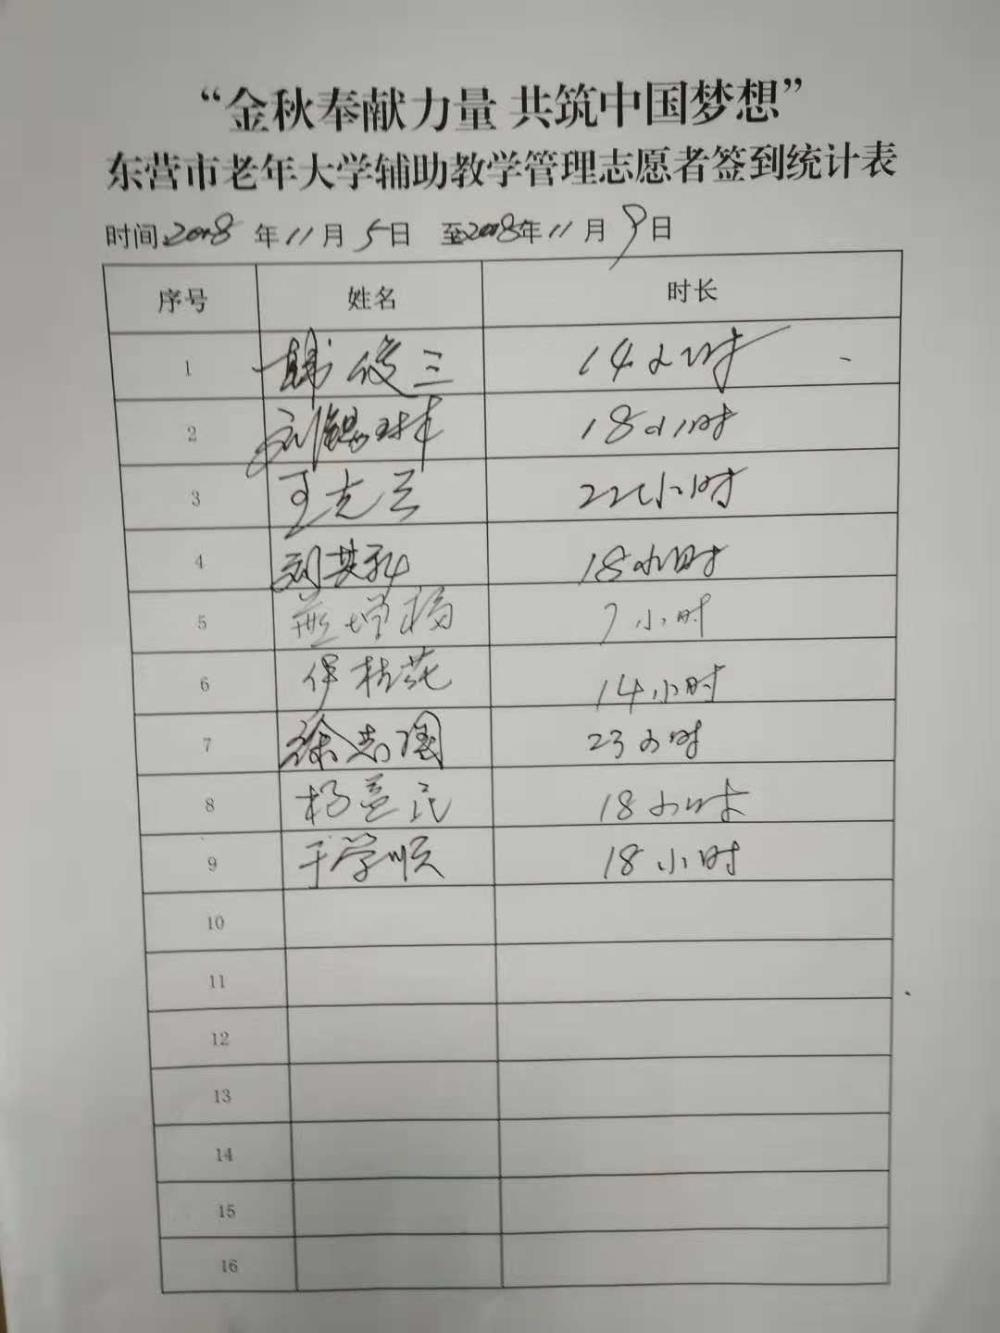 “金秋奉献力量 共筑中国梦想”
东营市老年大学辅助教学管理志愿者签到统计表
时间2018年11月5日 至2018年11月9日
序号 姓名 时长
1 韩俊三 14小时
2 18小时
3 王克兰 22小时
4 18小时
5 7小时
6 伊桂花 14小时
7 徐志国 23小时
8 杨益民 18小时
9 于学顺 18小时
10
11
12
13
14
15
16